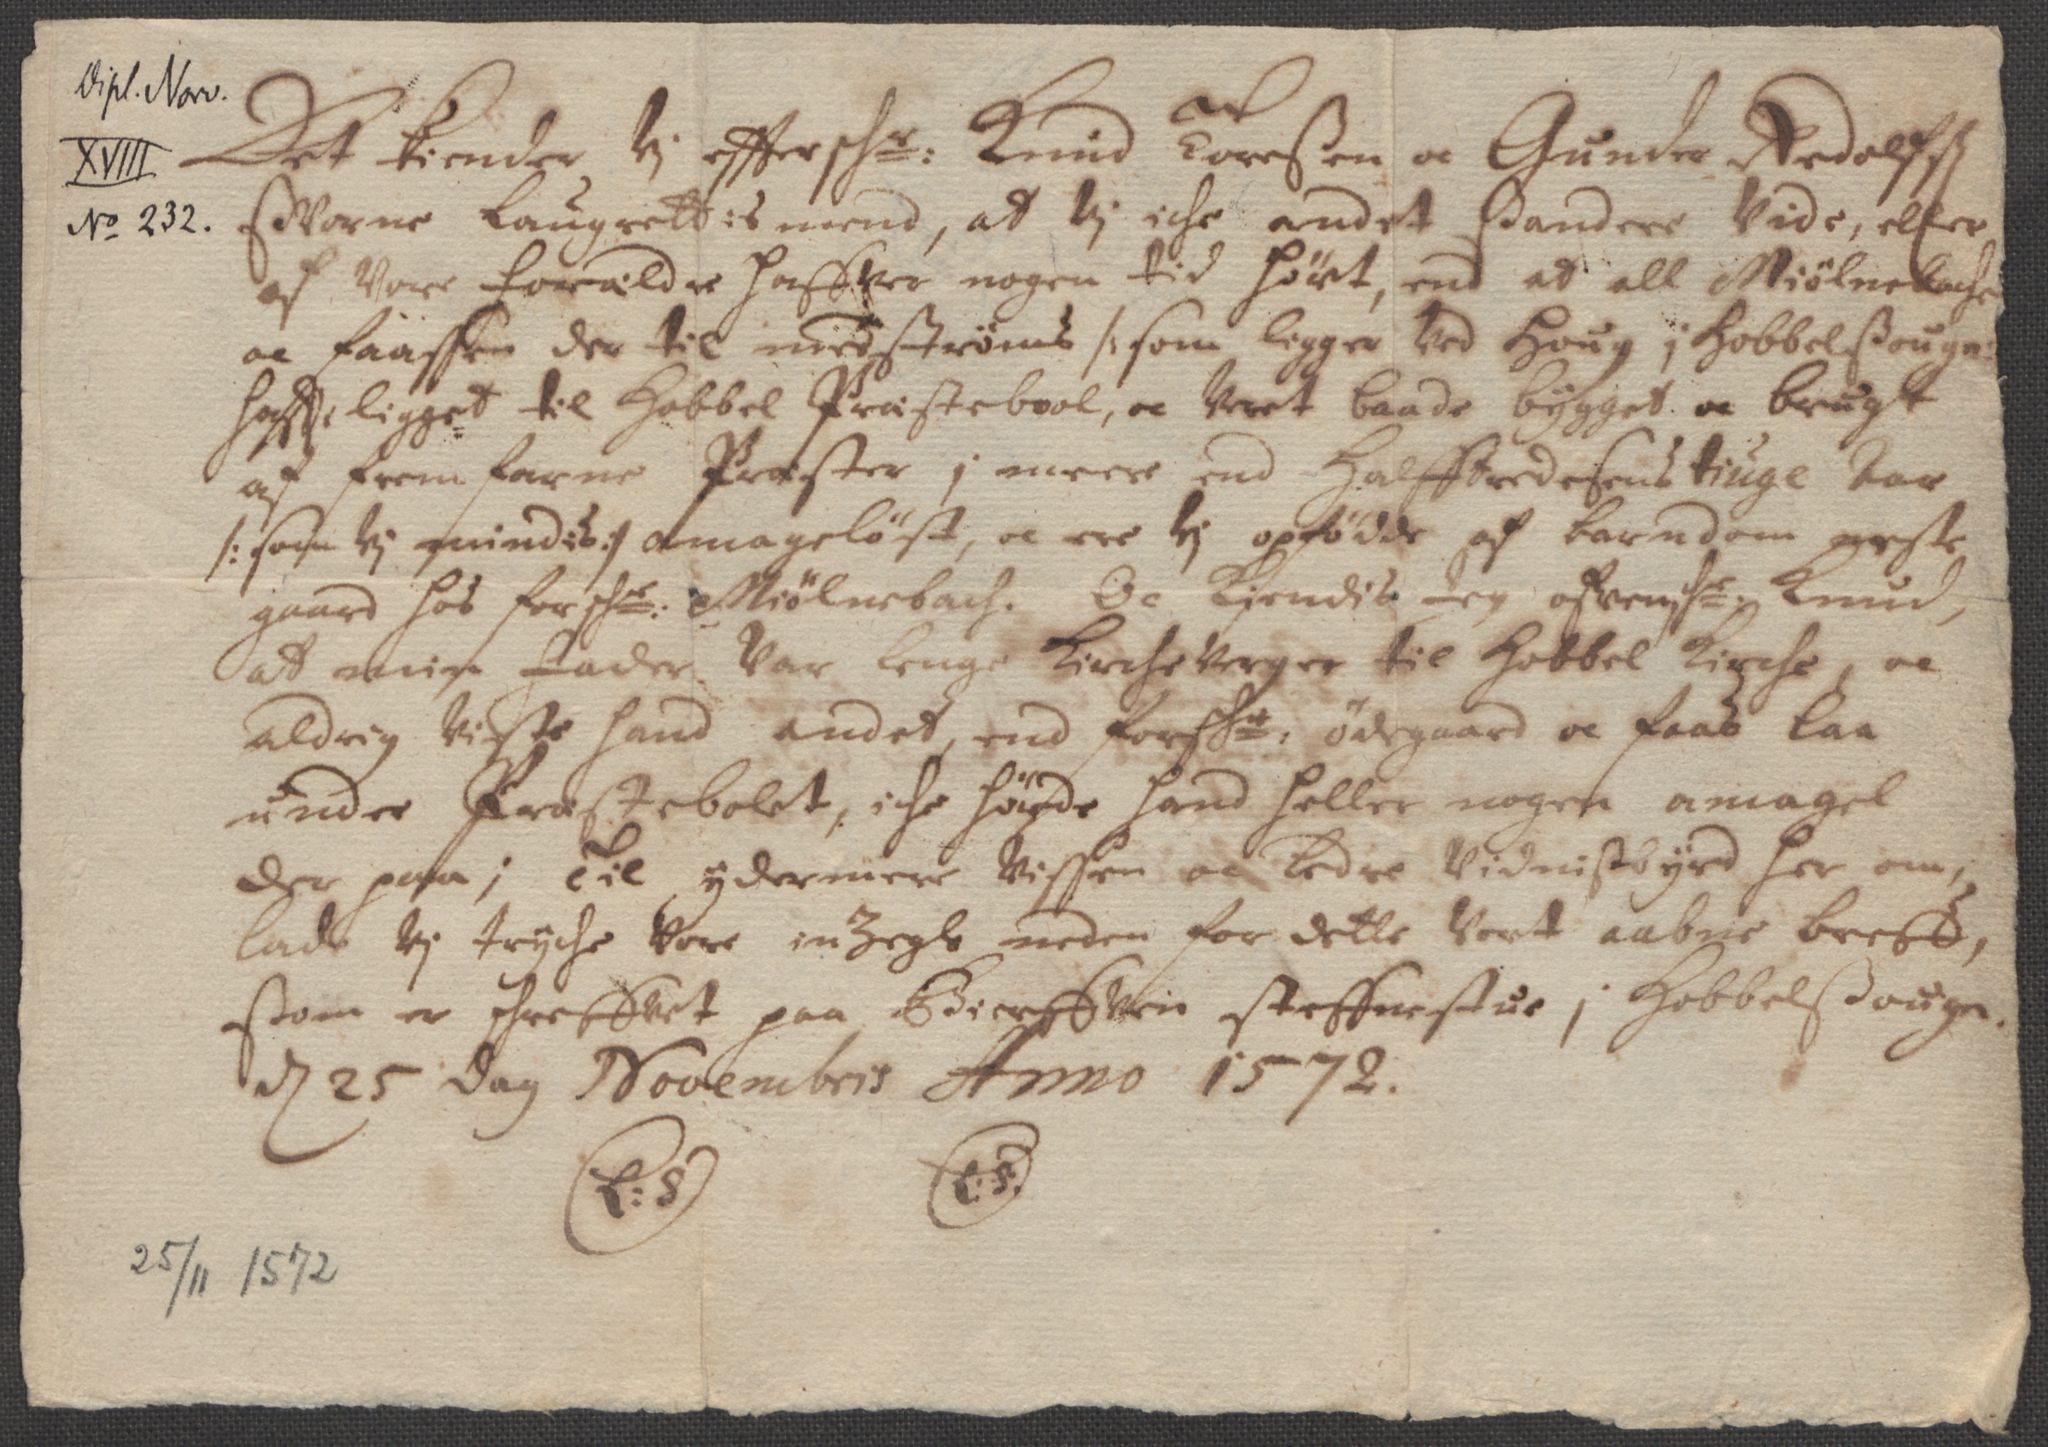 Dipl. Norv.
XVIII
No 232.
Det kiender Vj effterschr: Knud Toreßen oc Gunder Redolfß
ßVorne Laugrettis mend, at Vj iche andet ßandere Vide, eller
af Vore forældre haffver nogen tid hört, end at all Miölnebache
oc faassen der til nedströms /: som ligger Ved Houg j Hobbelßougn:
haffr ligget til Hobbel Præstebool, oc Veret baade bygget oc brugt
af fremfarne Præster j meere end Halfftredesens tiuge Aar
/: som Vj mindis :/ amagelöst, oc ere Vj opfödde af barndom neste
gaard hos forschr: Miölnebach. Oc Kiendis Jeg ofvenschr: Knud,
at min Fader Var lenge Kircheverger til Hobbel Kirche, oc
aldrig Viste hand andet, end forschr: ödegaard oc faas laa
under Præstebolet, iche hörde hand heller nogen amagel
der paa; Til ydermere Vissen oc bedre Vidnißbyrd her om,
lade Vj tryche Vore inZegle neden for dette Vort aabne breff,
ßom er schreffvet paa Biereffven steffnestue j Hobbelßougn.
d 25 Dag Novembris Anno 1572.
L:S L:S.
25/11 1572